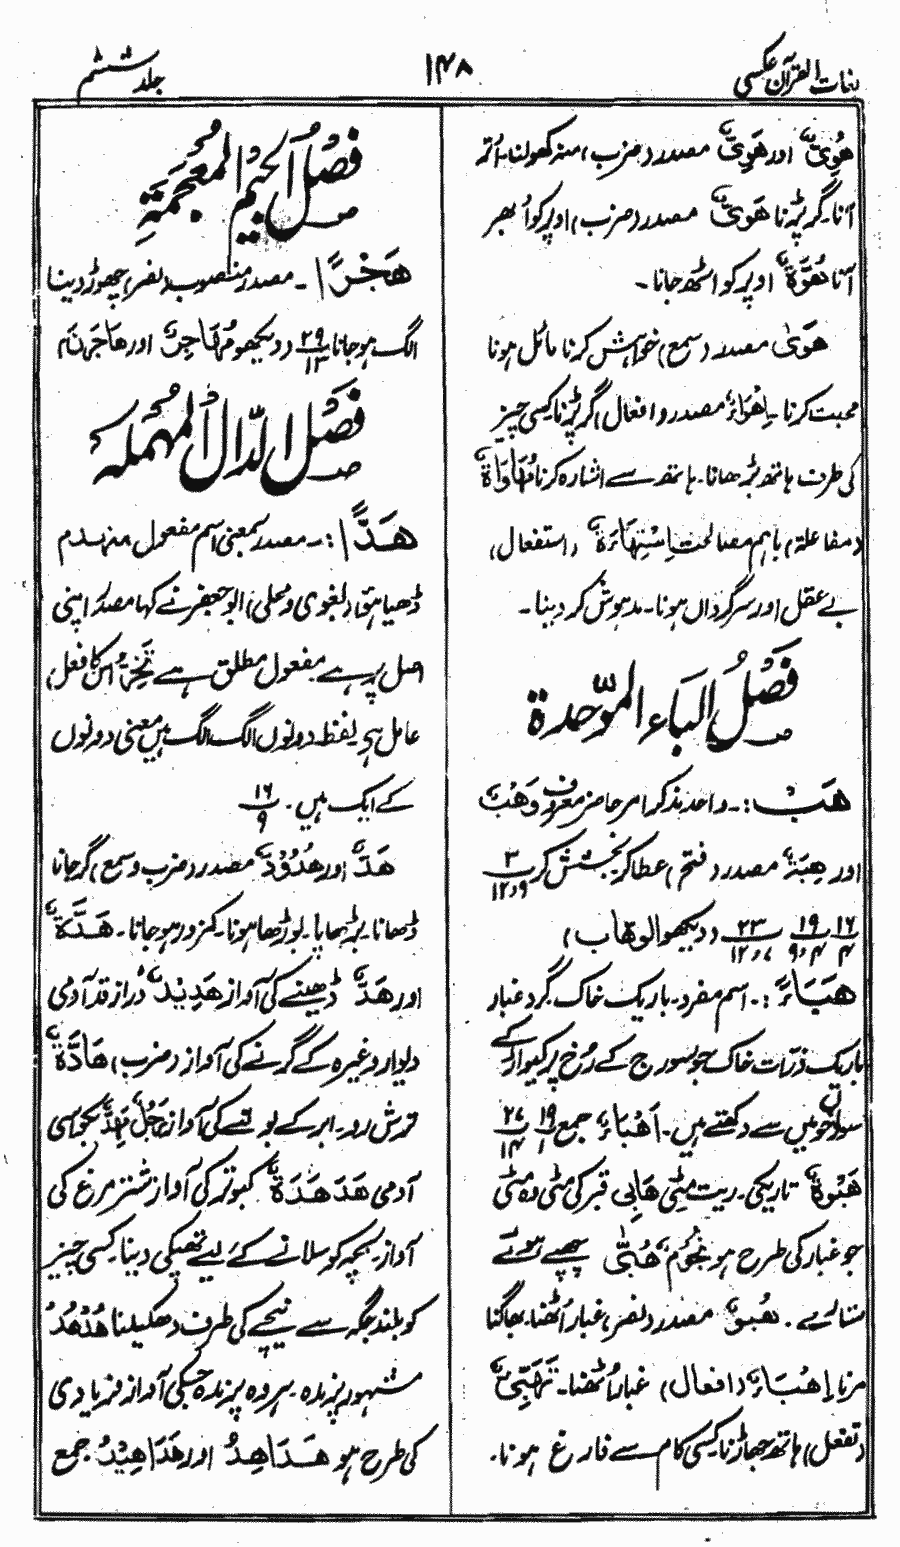 لغات القرآن عکسی
۱۴۸
جلد ششم
هُوِیٌّ اور هَوِیٌّ مصدر (ضرب) منہ کھولنا۔ اُتر
آنا۔ گر پڑنا هَوِیٌّ مصدر (ضرب) اوپر کو اُبھر
آنا هُوَّةٌ اوپر کو اٹھ جانا۔
هَوًی مصدر (سمع) خواہش کرنا مائل ہونا
محبت کرنا۔ اِهْوَاءٌ مصدر (افعال) گر پڑنا کسی چیز
کی طرف ہاتھ بڑھانا۔ ہاتھ سے اشارہ کرنا مُهَاوَاةٌ
(مفاعلۃ) باہم مصالحت اِسْتِهْآءَةٌ (استفعال)
بے عقل اور سرگرداں ہونا۔ مدہوش کر دینا۔
فَصْلُ الباء الموّحدة
هَبْ :۔ واحد مذکر امر حاضر معروف وَهْبٌ
اور هِبَةٌ مصدر (فتح) عطا کر بخشش کر ۳ ۱۲،۹
۱۶ ۴ ۱۹ ۹،۴ ۲۳ ۱۲،۷ (دیکھو الوهّاب)
هَبَآءً :۔ اسم مفرد۔ باریک خاک۔ گرد غبار
باریک ذرّات خاک جو سورج کے رُخ پر کیواڑ کے
سوراخوں میں سے دکھتے ہیں۔ اَهْبَاءٌ جمع ۱۹ ۱ ۲۷ ۱۴
هَبْوَةٌ تاریکی۔ ریت مٹی هَابِی قبر کی مٹی وہ مٹی
جو غبار کی طرح ہو نُجُومٌ هُبًّی چھپے ہوئے
ستارے۔ هُبُوٌّ مصدر (نصر) غبار اُٹھنا۔ بھاگنا
مرنا اِهْبَاءٌ (افعال) غبار اُٹھنا۔ تَهَبِّیٌ
(تفعل) ہاتھ جھاڑنا کسی کام سے فارغ ہونا۔
فَصْلُ الجِیْمِ الْمُعْجَمَةِ
هَجْرًا :۔ مصدر منصوب (نصر) چھوڑ دینا
الگ ہو جانا ۲۹ ۱۳ (دیکھو مُهَاجِرٌ اور هَاجَرْنَ)
فَصْلُ الدَّالِ الْمُهْمَلَه
هَدًّا :۔ مصدر بمعنی اسم مفعول منہدم
ڈھیا ہوا (لغوی و محلی) ابو جعفر نے کہا مصدر اپنی
اصل پر ہے مفعول مطلق ہے تَخِرُّ اس کا فعل
عامل ہے لفظ دونوں الگ الگ ہیں معنی دونوں
کے ایک ہیں۔ ۱۶ ۹
هَدٌّ اور هُدُوْدٌ مصدر (ضرب و سمع) گر جانا
ڈھانا۔ بڑھاپا۔ بوڑھا ہونا۔ کمزور ہو جانا۔ هَدَّةٌ
اور هَدٌّ ڈھینے کی آواز هَدِیْدٌ دراز قد آدمی
دیوار وغیرہ کے گرنے کی آواز (ضرب) هَادَّةٌ
ترش رو۔ ابر کے بولنے کی آواز رَجُلٌ هَدٌّ بخواسی
آدمی هَدْهَدَةٌ کبوتر کی آواز شتر مرغ کی
آواز بچہ کو سلانے کے لیے تھپکی دینا کسی چیز
کو بلند جگہ سے نیچے کی طرف دھکیلنا هُدْهُدُ
مشہور پرندہ۔ ہر وہ پرندہ جس کی آواز فریادی
کی طرح ہو هَدَاهِدُ اور هَدَاهِیْدُ جمع